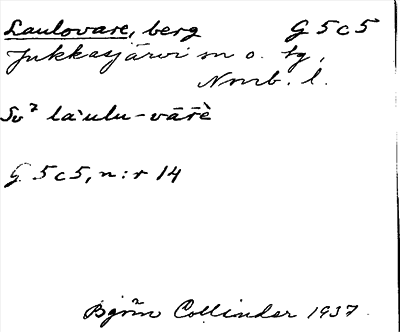 Laulovare, berg G5c5
Jukkasjärvi sn o. tg,
Nmrb. l.
Sv² la`ulu-vārè
G 5c5, n:r 14
Björn Collinder 1937